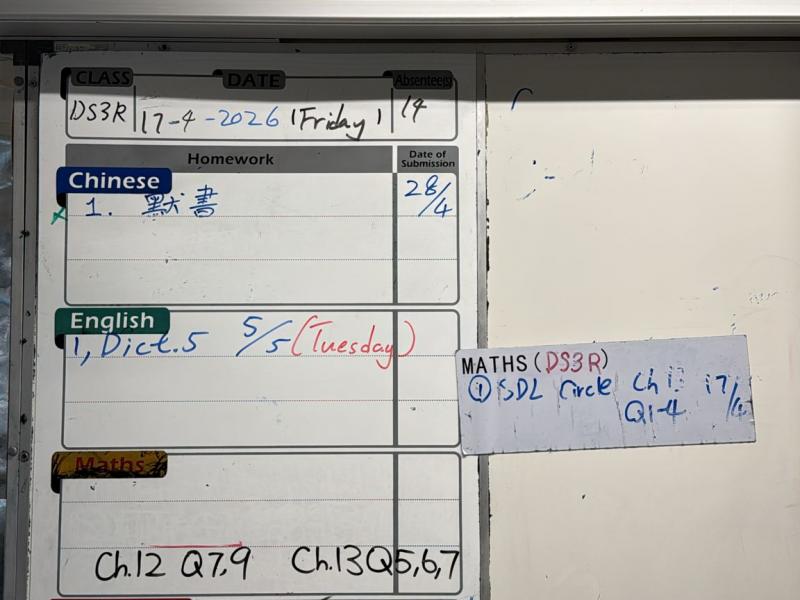 CLASS DATE Absentee(s)
DS3R 17-4-2026 (Friday) 14
Homework Date of Submission
Chinese
1. 默書 28/4
English
1, Dict.5 5/5 (Tuesday)
MATHS (DS3R)
① SDL Circle Ch 17/4
Q1-4
Maths
Ch.12 Q7,9 Ch.13Q5,6,7